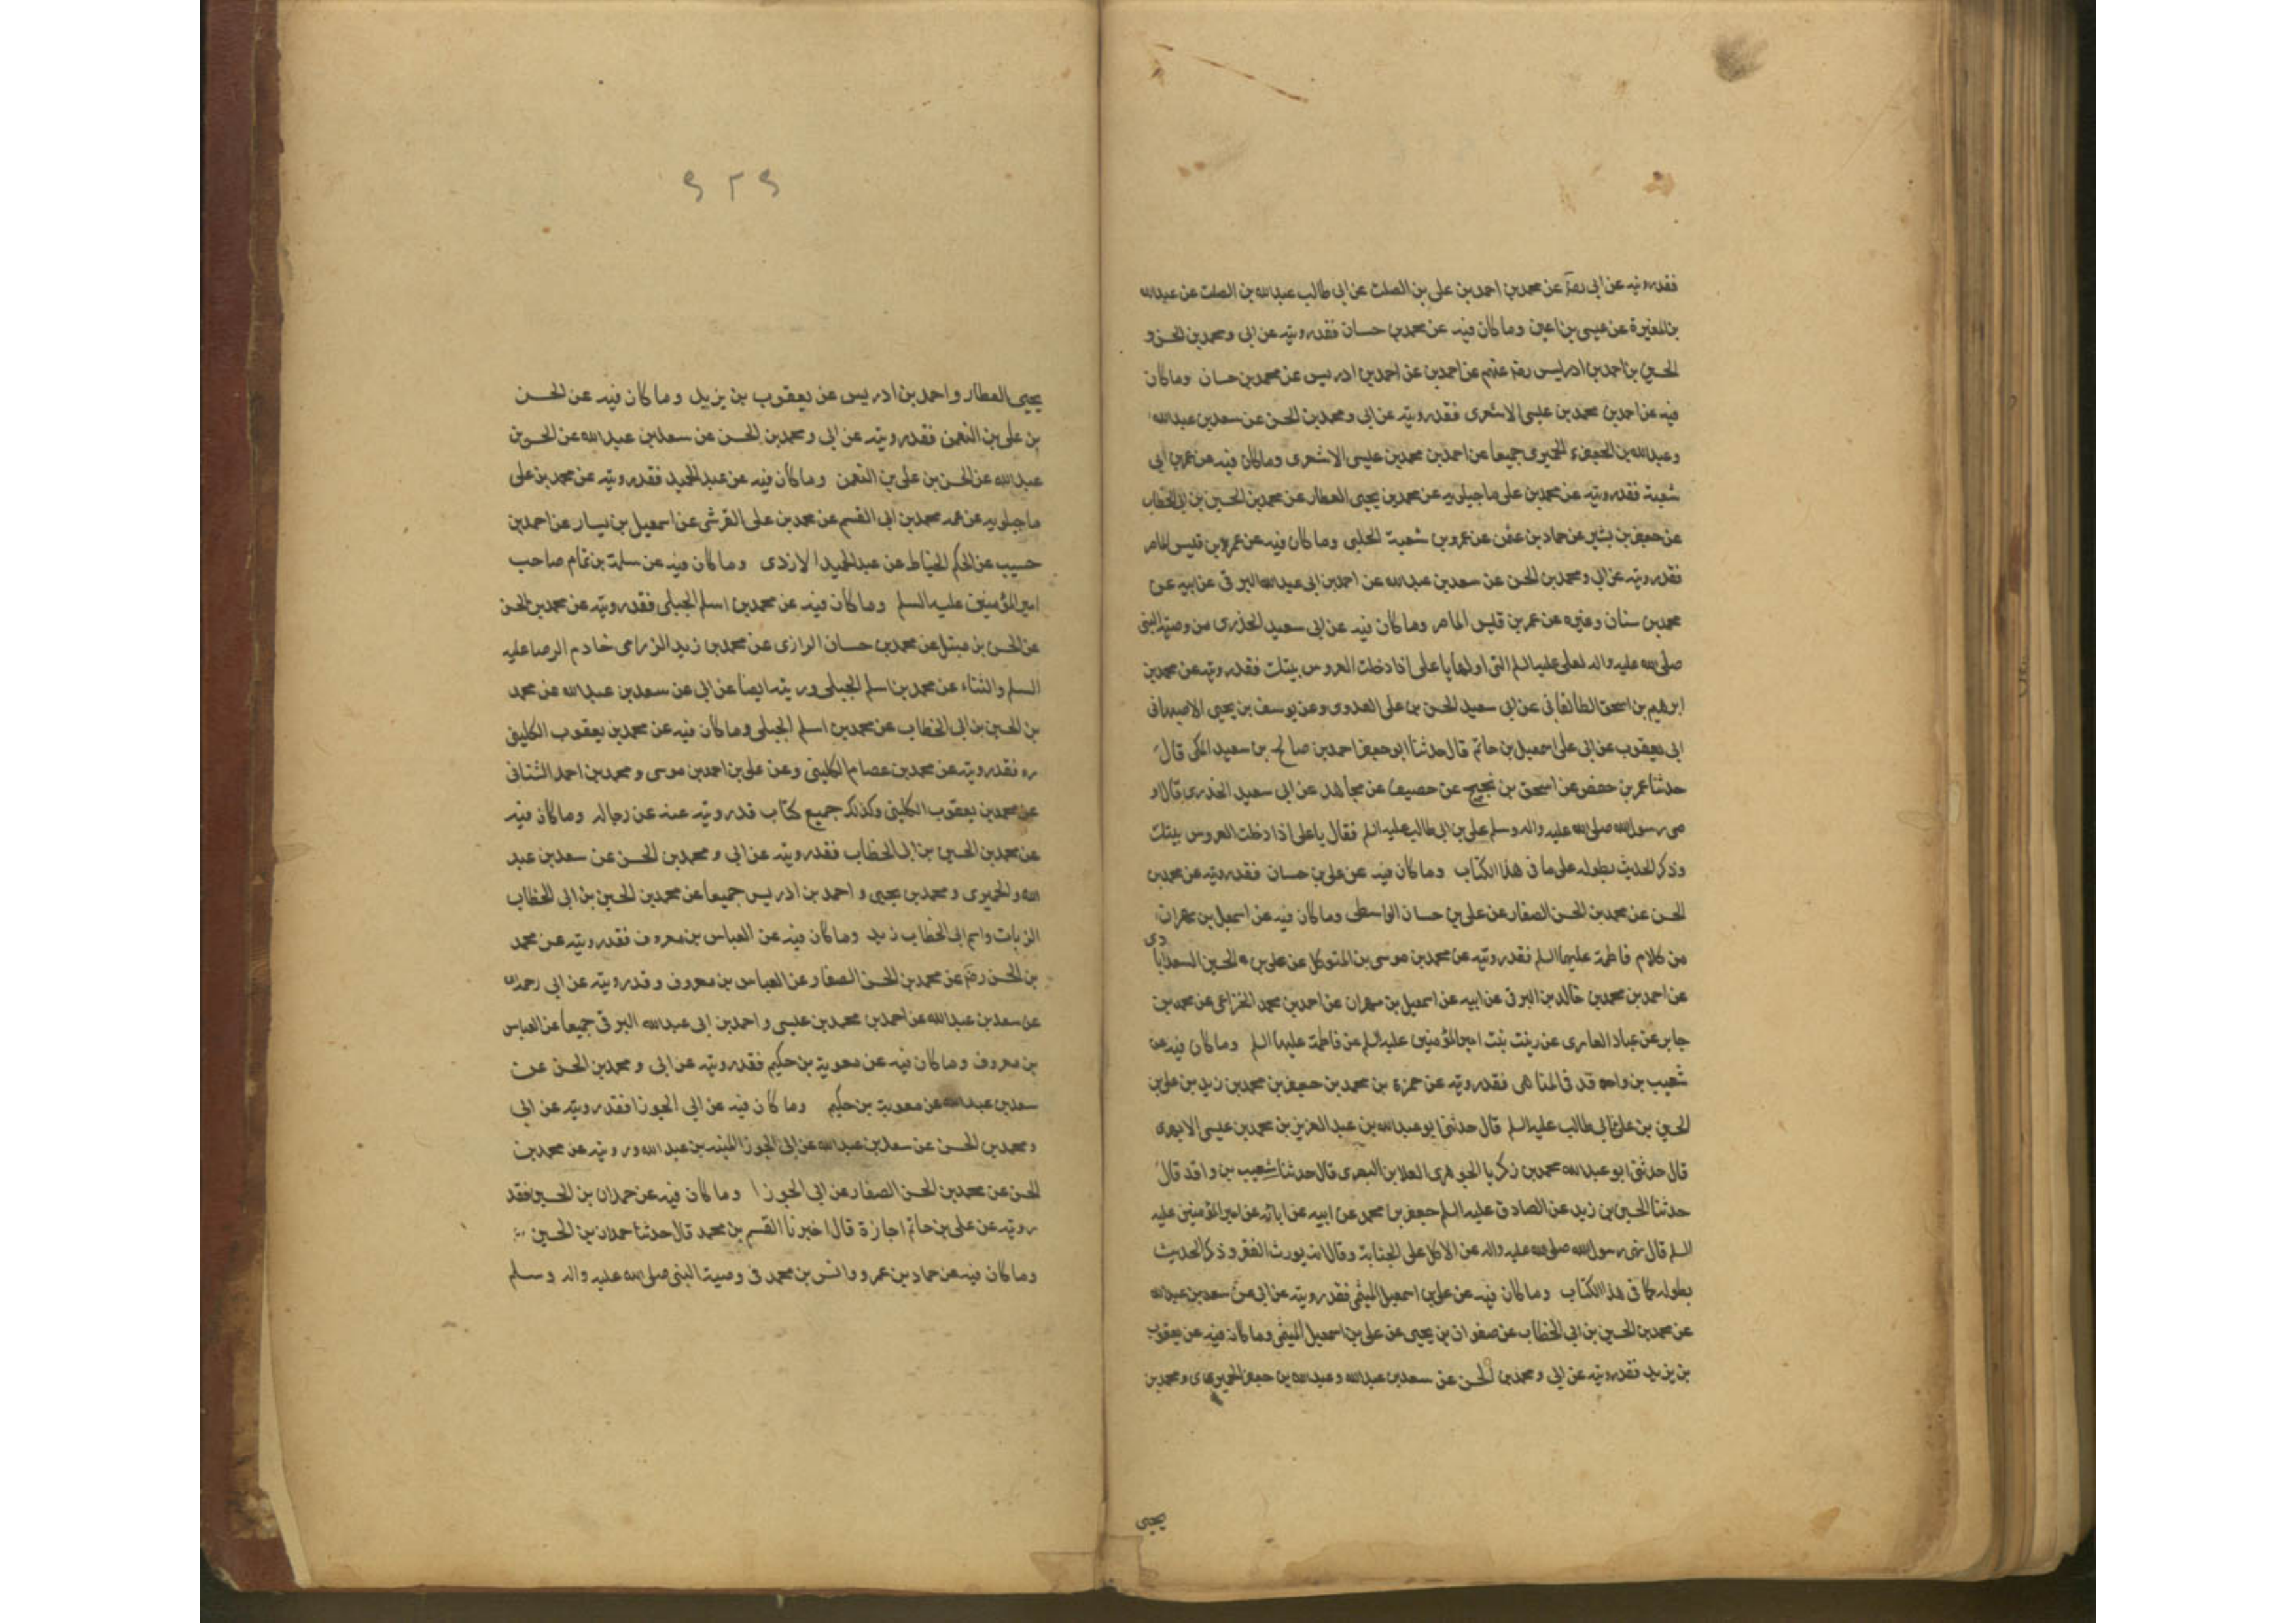 فقد رويته عن ابي رضه عن محمد بن احمد بن علي بن الصلت عن ابي طالب عبد الله بن الصلت عن عبد الله
بن المغيرة عن عيسى بن اعين وما كان فيه عن محمد بن حسان فقد رويته عن ابي ومحمد بن الحسن و
الحسين بن احمد بن ادريس رضه عنهم عن احمد بن عن احمد بن ادريس عن محمد بن حسان وما كان
فيه عن احمد بن محمد بن عيسى الاشعري فقد رويته عن ابي ومحمد بن الحسن عن سعد بن عبد الله
وعبد الله بن الحميري جميعا عن احمد بن محمد بن عيسى الاشعري وما كان فيه عن عمر بن ابي
شعبة فقد رويته عن محمد بن علي ماجيلويه عن محمد بن يحيى العطار عن محمد بن الحسين بن ابي الخطاب
عن جعفر بن بشير عن حماد بن عثمن عن عمر بن شعبة الحلبي وما كان فيه عن عمر بن قيس الماصر
فقد رويته عن ابي ومحمد بن الحسن عن سعد بن عبد الله عن احمد بن ابي عبد الله البرقي عن ابيه عن
محمد بن سنان وغيره عن عمر بن قيس الماصر وما كان فيه عن ابي سعيد الخذري من وصية النبي
صلى الله عليه واله لعلي عليه السلم التي اولها يا علي اذا دخلت العروس بيتك فقد رويته عن محمد بن
ابرهيم بن اسحق الطالقاني عن ابي سعيد الحسن بن علي العدوي وعن يوسف بن يحيى الاصبهاني
ابي يعقوب عن ابي علي اسمعيل بن حاتم قال حدثنا ابو جعفر احمد بن صالح بن سعيد المكي قال
حدثنا عمر بن حفص عن اسحق بن نجيح عن حصيف عن مجاهد عن ابي سعيد الخذري قال او
صى رسول الله صلى الله عليه واله وسلم علي بن ابي طالب عليه السلم فقال يا علي اذا دخلت العروس بيتك
وذكر الحديث بطوله على ما في هذا الكتاب وما كان فيه عن علي بن حسان فقد رويته عن محمد بن
الحسن عن محمد بن الحسن الصفار عن علي بن حسان الواسطي وما كان فيه عن اسمعيل بن مهران
من كلام فاطمة عليها السلم فقد رويته عن محمد بن موسى بن المتوكل عن علي بن الحسين السعدابادى
عن احمد بن محمد بن خالد بن البرقي عن ابيه عن اسمعيل بن مهران عن احمد بن محمد الخزاعي عن محمد بن
جابر عن عباد العامري عن زينت بنت امير المؤمنين عليه السلم عن فاطمة عليها السلم وما كان فيه عن
شعيب بن واقد في المناهي فقد رويته عن حمزة بن محمد بن جعفر بن محمد بن زيد بن علي بن
الحسين بن علي بن ابي طالب عليه السلم قال حدثني ابو عبد الله بن عبد العزيز بن محمد بن عيسى الابهري
قال حدثني ابو عبد الله محمد بن زكريا الجوهري العلابن البصري قال حدثنا شعيب بن واقد قال
حدثنا الحسين بن زيد عن الصادق عليه السلم جعفر بن محمد عن ابيه عن ابائه عن امير المؤمنين عليه
السلم قال نهى رسول الله صلى الله عليه واله عن الاكل على الجنابة وقال انه يورث الفقر وذكر الحديث
بطوله كما في هذا الكتاب وما كان فيه عن علي بن اسمعيل الميثمي فقد رويته عن ابي عن سعد بن عبد الله
عن محمد بن الحسين بن ابي الخطاب عن صفوان بن يحيى عن علي بن اسمعيل الميثمي وما كان فيه عن يعقوب
بن يزيد فقد رويته عن ابي ومحمد بن الحسن عن سعد بن عبد الله وعبد الله بن جعفر الحميري ومحمد بن
يحيى
۹۲۹
يحيى العطار واحمد بن ادريس عن يعقوب بن يزيد وما كان فيه عن الحسن
بن علي بن النعمن فقد رويته عن ابي ومحمد بن الحسن عن سعد بن عبد الله عن الحسن بن
عبد الله عن الحسن بن علي بن النعمن وما كان فيه عن عبد الحميد فقد رويته عن محمد بن علي
ماجيلويه عن عمه محمد بن ابي القسم عن محمد بن علي القرشي عن اسمعيل بن يسار عن احمد بن
حبيب عن الحكم الخياط عن عبد الحميد الازدي وما كان فيه عن سلمة بن تمام صاحب
امير المؤمنين عليه السلم وما كان فيه عن محمد بن اسلم الجبلي فقد رويته عن محمد بن الحسن
عن الحسن بن متيل عن محمد بن حسان الرازي عن محمد بن زيد الزرامي خادم الرضا عليه
السلم والثناء عن محمد بن اسلم الجبلي ورويته ايضا عن ابي عن سعد بن عبد الله عن محمد
بن الحسين بن ابي الخطاب عن محمد بن اسلم الجبلي وما كان فيه عن محمد بن يعقوب الكليني
ره فقد رويته عن محمد بن عصام الكليني وعن علي بن احمد بن موسى ومحمد بن احمد الشناني
عن محمد بن يعقوب الكليني وكذلك جميع كتاب قد رويته عنه عن رجاله وما كان فيه
عن محمد بن الحسين بن ابي الخطاب فقد رويته عن ابي ومحمد بن الحسن عن سعد بن عبد
الله والحميري ومحمد بن يحيى واحمد بن ادريس جميعا عن محمد بن الحسين بن ابي الخطاب
الزيات واسم ابي الخطاب زيد وما كان فيه عن العباس بن معروف فقد رويته عن محمد
بن الحسن رضه عن محمد بن الحسن الصفار عن العباس بن معروف وقد رويته عن ابي رحمه الله
عن سعد بن عبد الله عن احمد بن محمد بن عيسى واحمد بن ابي عبد الله البرقي جميعا عن العباس
بن معروف وما كان فيه عن معوية بن حكيم فقد رويته عن ابي ومحمد بن الحسن عن
سعد بن عبد الله عن معوية بن حكيم وما كان فيه عن ابي الجوزا فقد رويته عن ابي
ومحمد بن الحسن عن سعد بن عبد الله عن ابي الجوزا المنبه بن عبد الله ورويته عن محمد بن
الحسن عن محمد بن الحسن الصفار عن ابي الجوزا وما كان فيه عن حمدان بن الحسين فقد
رويته عن علي بن حاتم اجازة قال اخبرنا القسم بن محمد قال حدثنا حمدان بن الحسين
وما كان فيه عن حماد بن عمرو وانس بن محمد في وصية النبي صلى الله عليه واله وسلم